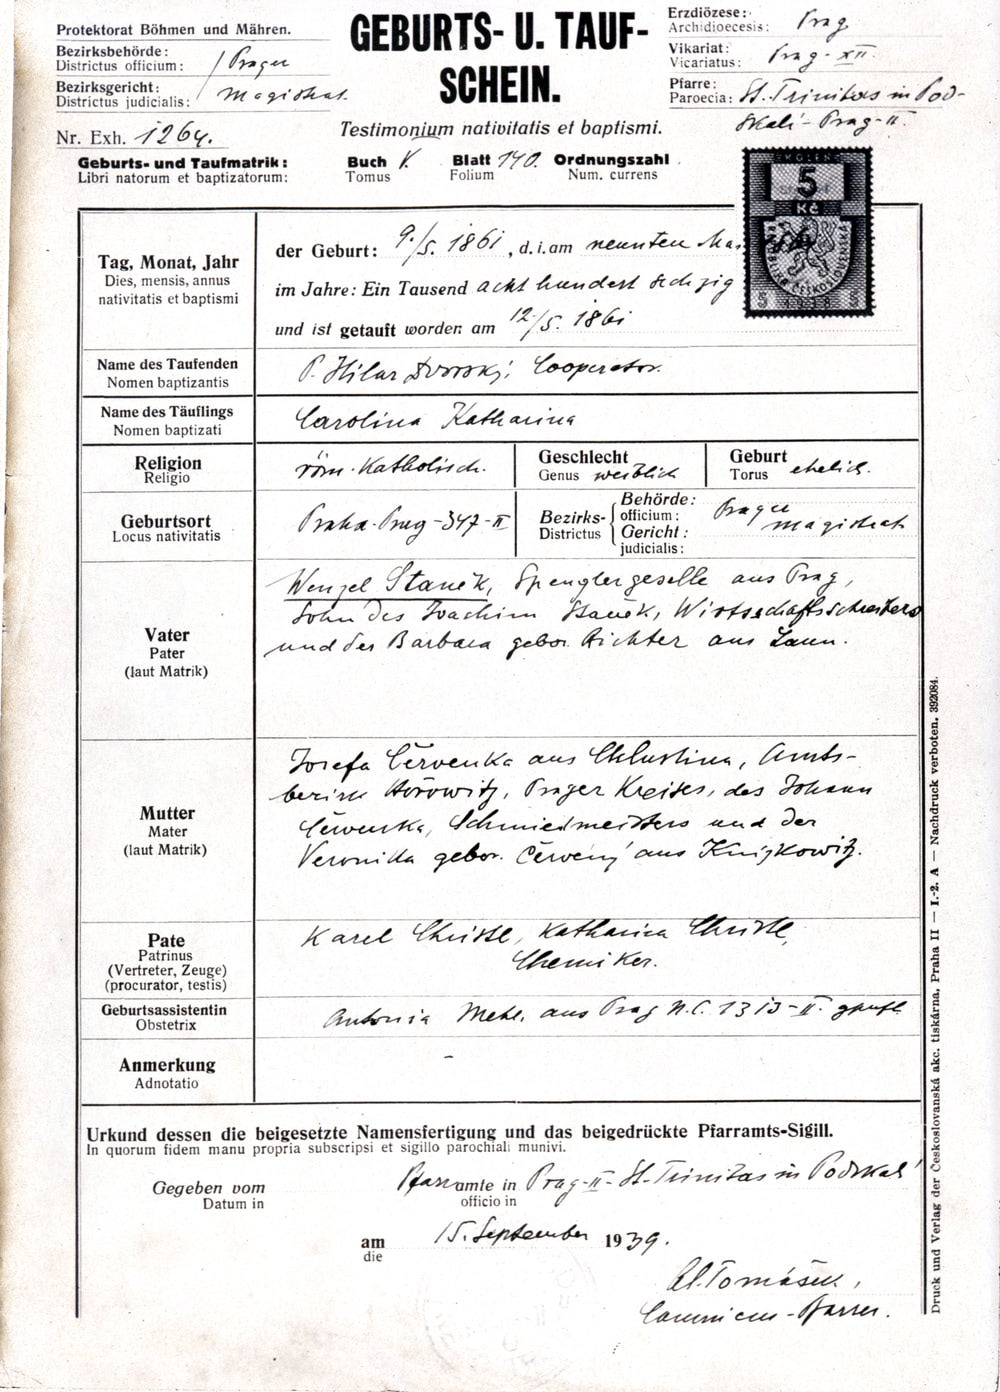 Protektorat Böhmen und Mähren.
Bezirksbehörde:
Districtus officium: Prager
Bezirksgericht:
Districtus judicialis: Magistrat.
Nr. Exh. 1264.
GEBURTS- U. TAUF-
SCHEIN.
Testimonium nativitatis et baptismi.
Erzdiözese:
Archidioecesis: Prag
Vikariat:
Vicariatus: Prag-XII.
Pfarre:
Paroecia: St. Trinitas in Pod-
skalí-Prag-II.
Geburts- und Taufmatrik: Buch V Blatt 140. Ordnungszahl
Libri natorum et baptizatorum: Tomus Folium Num. currens
5
Kč
5 1938 5
Tag, Monat, Jahr
Dies, mensis, annus
nativitatis et baptismi
der Geburt: 9./5. 1861, d. i. am neunten Mai
im Jahre: Ein Tausend acht hundert sechzig
und ist getauft worden am 12/5. 1861
Name des Taufenden
Nomen baptizantis
P. Hilar Dvorský, Cooperator.
Name des Täuflings
Nomen baptizati
Carolina Katharina
Religion
Religio
röm. Katholisch.
Geschlecht
Genus weiblich
Geburt
Torus ehelich.
Geburtsort
Locus nativitatis
Praha-Prag-347-II
Bezirks-
Districtus
Behörde:
officium:
Gericht:
judicialis:
Prager
Magistrat
Vater
Pater
(laut Matrik)
Wenzel Staněk, Spenglergeselle aus Prag,
Sohn des Joachim Staněk, Wirtschaftsschreibers
und der Barbara gebor. Richter aus Laun.
Mutter
Mater
(laut Matrik)
Josefa Červenka aus Chlustina, Amts-
bezirk Hořowitz, Prager Kreises, des Johann
Červenka, Schmiedmeisters und der
Veronika gebor. Červený aus Knižkowitz.
Pate
Patrinus
(Vertreter, Zeuge)
(procurator, testis)
Karel Christl, Katharina Christl,
Chemiker.
Geburtsassistentin
Obstetrix
Antonia aus Prag N.C. 1313-II. geprüft
Anmerkung
Adnotatio
–
Urkund dessen die beigesetzte Namensfertigung und das beigedrückte Pfarramts-Sigill.
In quorum fidem manu propria subscripsi et sigillo parochiali munivi.
Gegeben vom Pfarramte in Prag-II-St. Trinitas in Podskalí
Datum in officio in
am 15. September 1939.
die
Al. Tomášek,
Pfarrer.
Druck und Verlag der Československá akc. tiskárna, Praha II — I.-2. A — Nachdruck verboten. 392084.